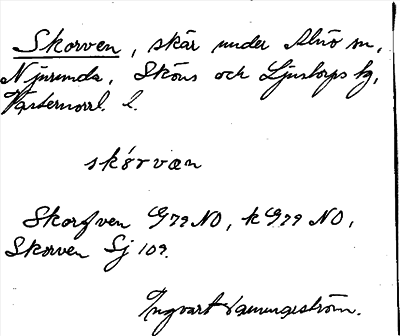 Skorven, skär under Alnö sn,
Njurunda, Sköns och Ljustorps tg,
Västernorrl. l.
skórvæn
Skorfven G79 NO, k G79 NO,
Skorven Sj 109.
Ingvart